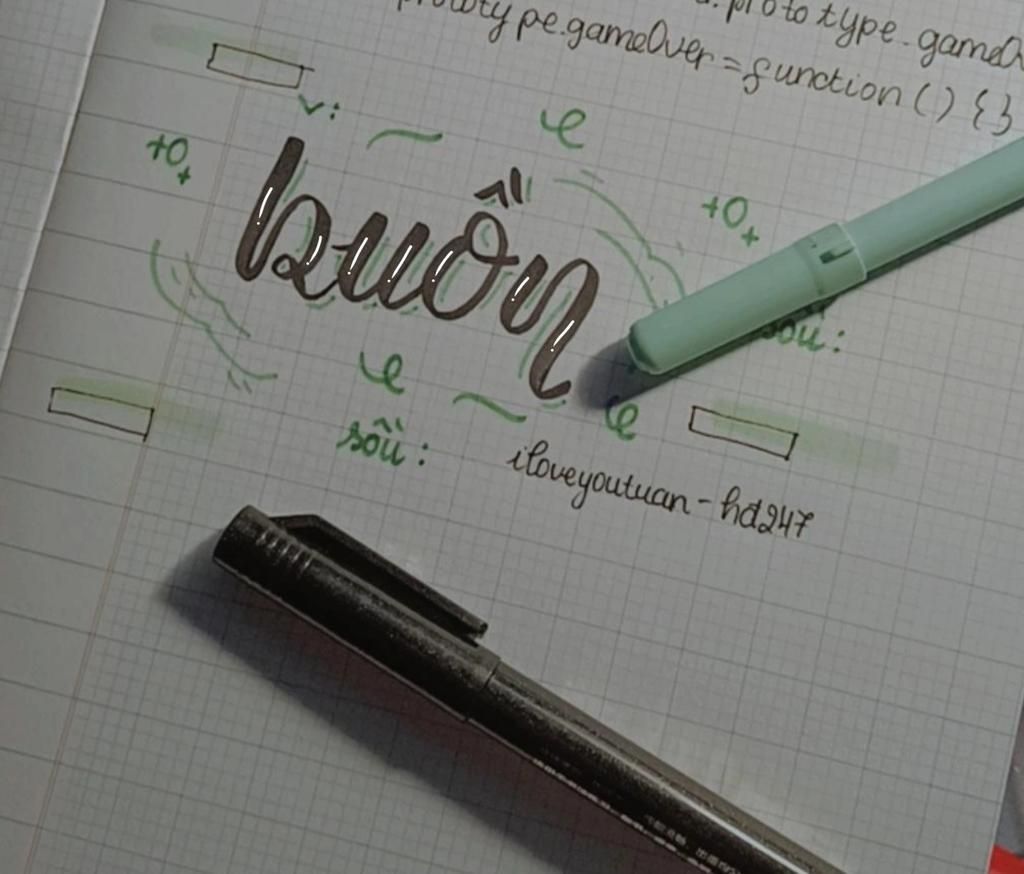 prototype.gameO
prototype.gameOver = function () {}
v:
buồn
sầu:
iloveyoutuan - hd247